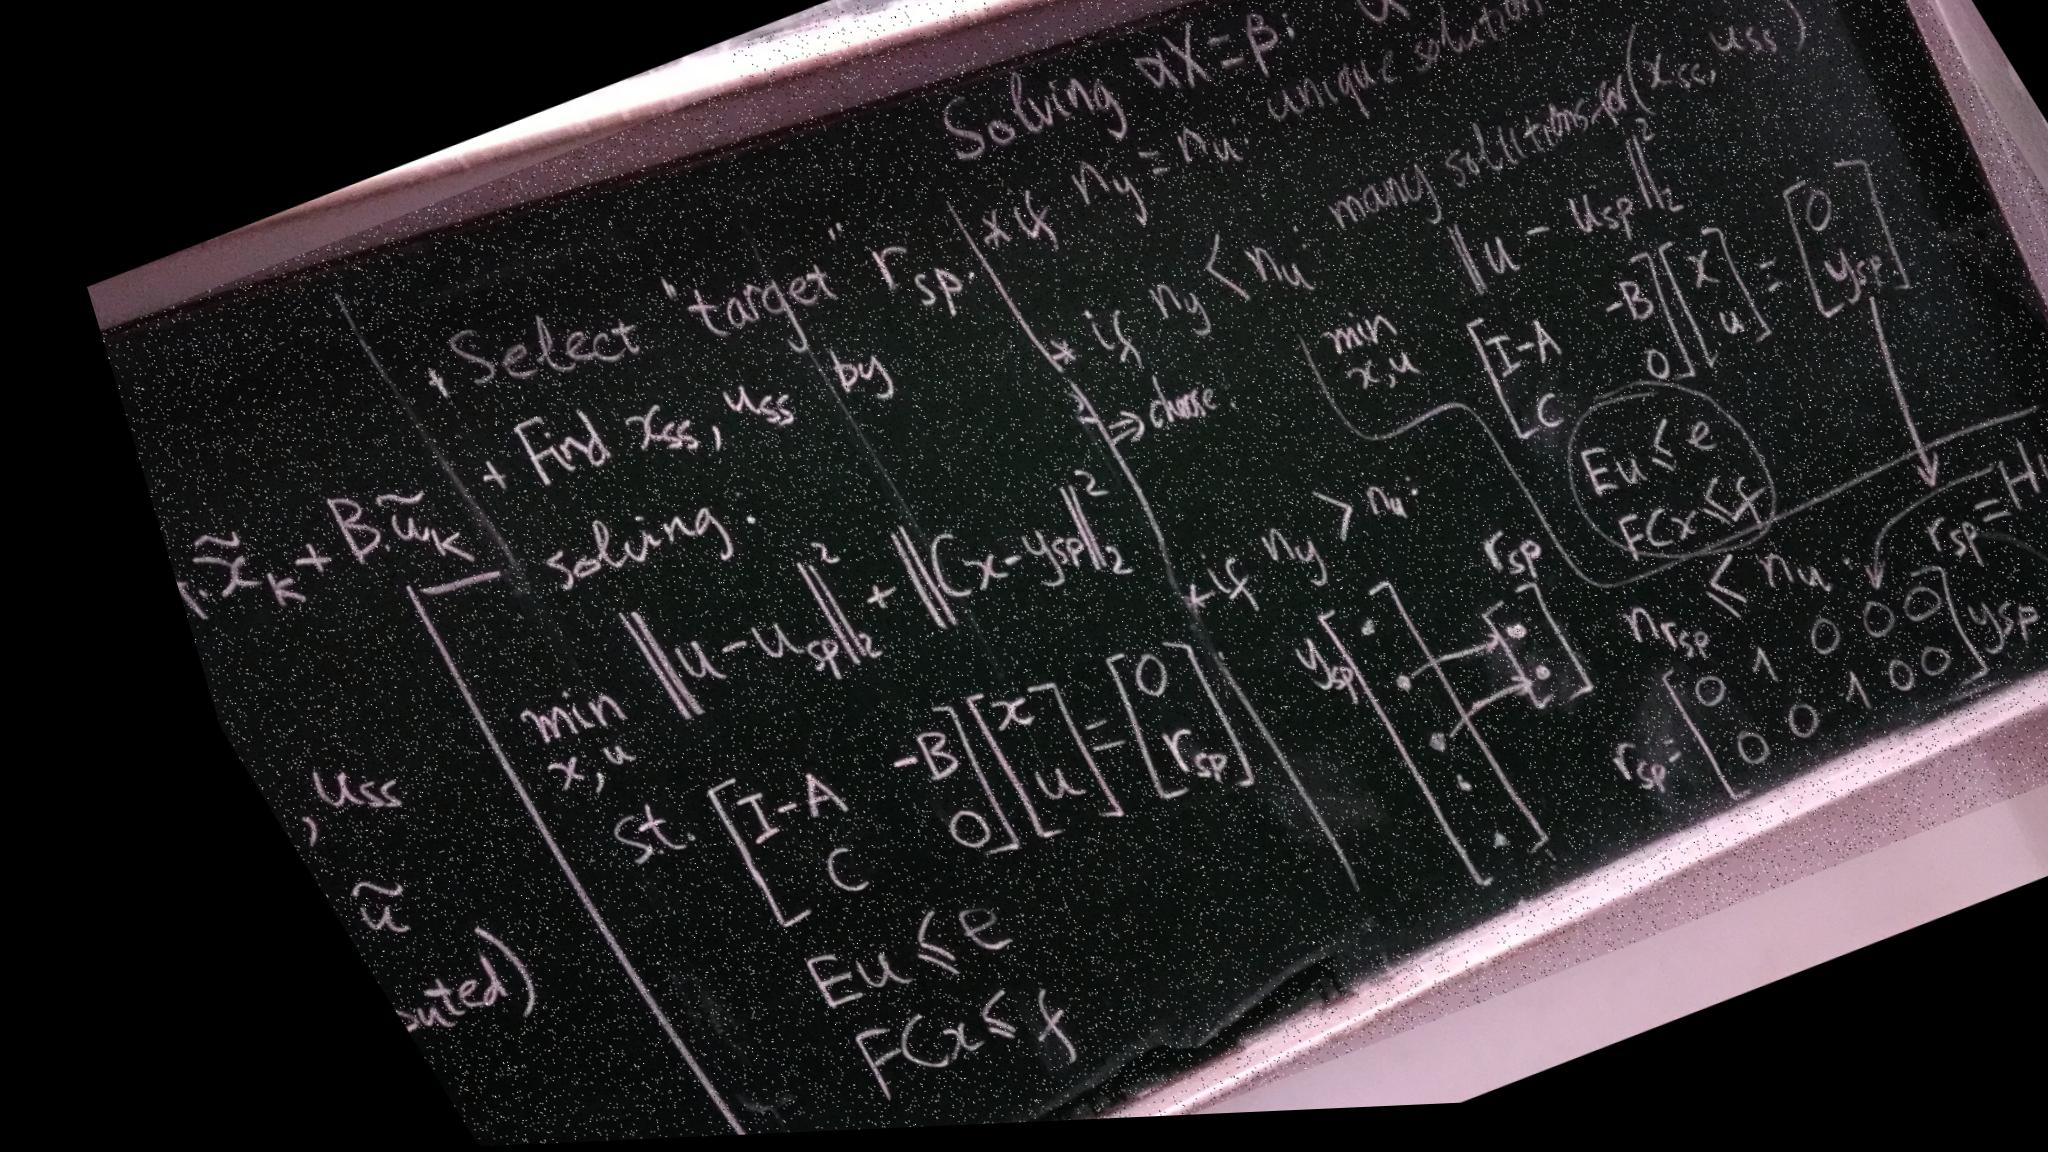 x̃_K + B.ũ_K
, u_ss
ũ
uted)
+ Select "target" r_sp.
+ Find x_ss, u_ss by
solving.
min ‖u - u_sp‖₂² + ‖Cx - y_sp‖₂²
x,u
st. [I-A -B; C 0] [x; u] = [0; r_sp]
Eu ≤ e
FCx ≤ f
Solving αX = β:
* if n_y = n_u: unique solution
* if n_y < n_u: many solutions for (x_ss, u_ss)
⇒ choose.
min ‖u - u_sp‖₂²
x,u
[I-A -B; C 0] [x; u] = [0; y_sp]
Eu ≤ e
FCx ≤ f
+ if n_y > n_u:
y_sp
r_sp
n_rsp ≤ n_u.
r_sp = H
r_sp = [0 1 0 0 0; 0 0 1 0 0] y_sp